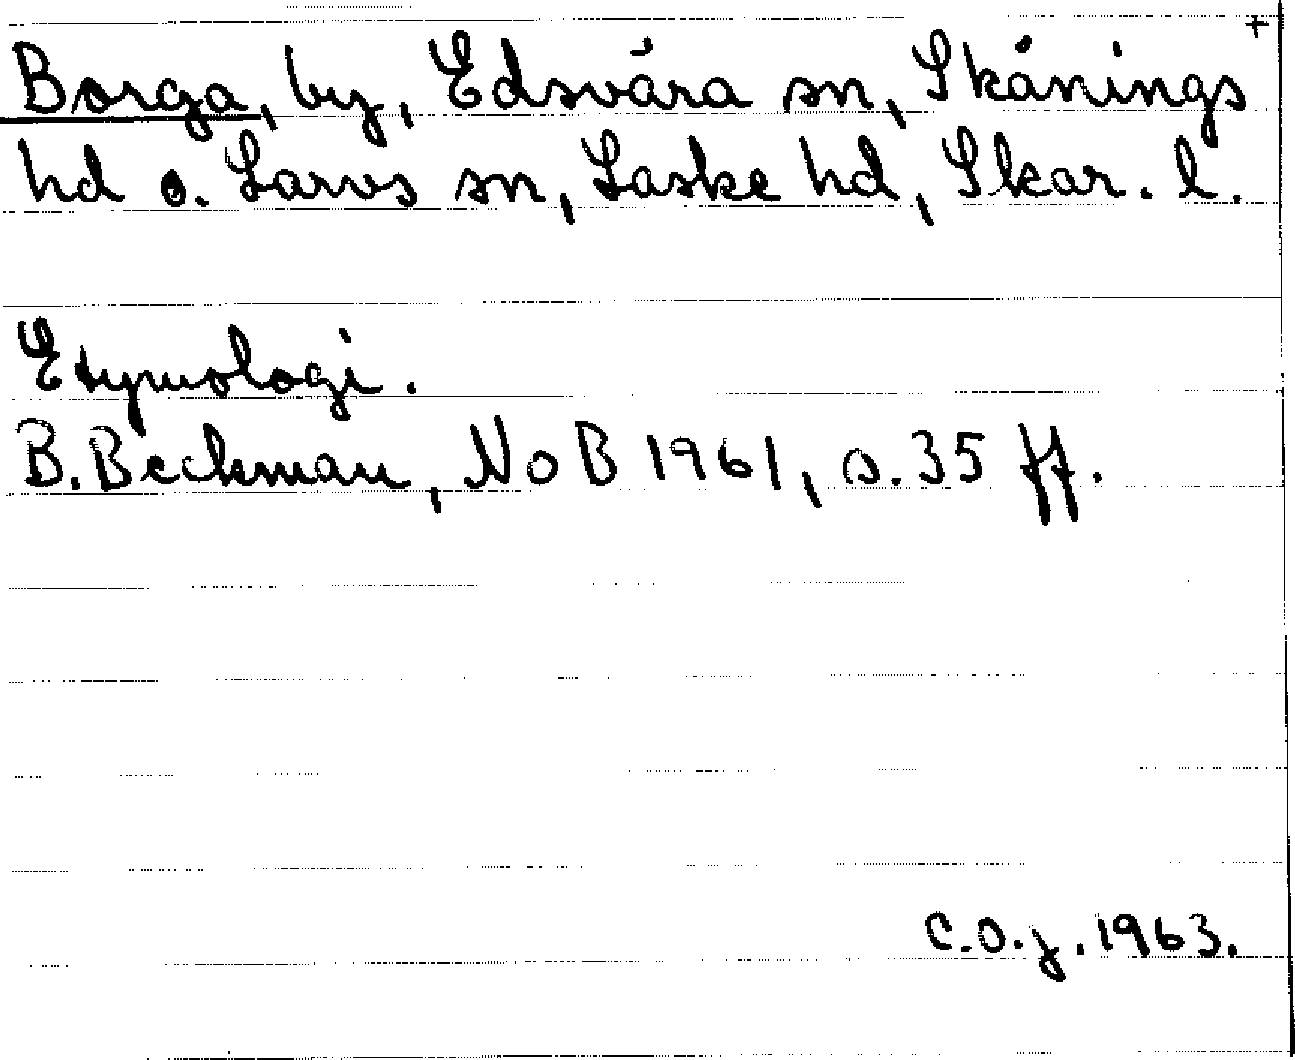 +
Borga, by, Edsvära sn, Skånings
hd o. Larvs sn, Laske hd, Skar. l.
Etymologi.
B. Beckman, NoB 1961, s. 35 ff.
C.O.J. 1963.